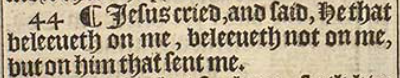 44 ¶ Jesus cried, and said, He that
beleeueth on me, beleeueth not on me,
but on him that sent me.